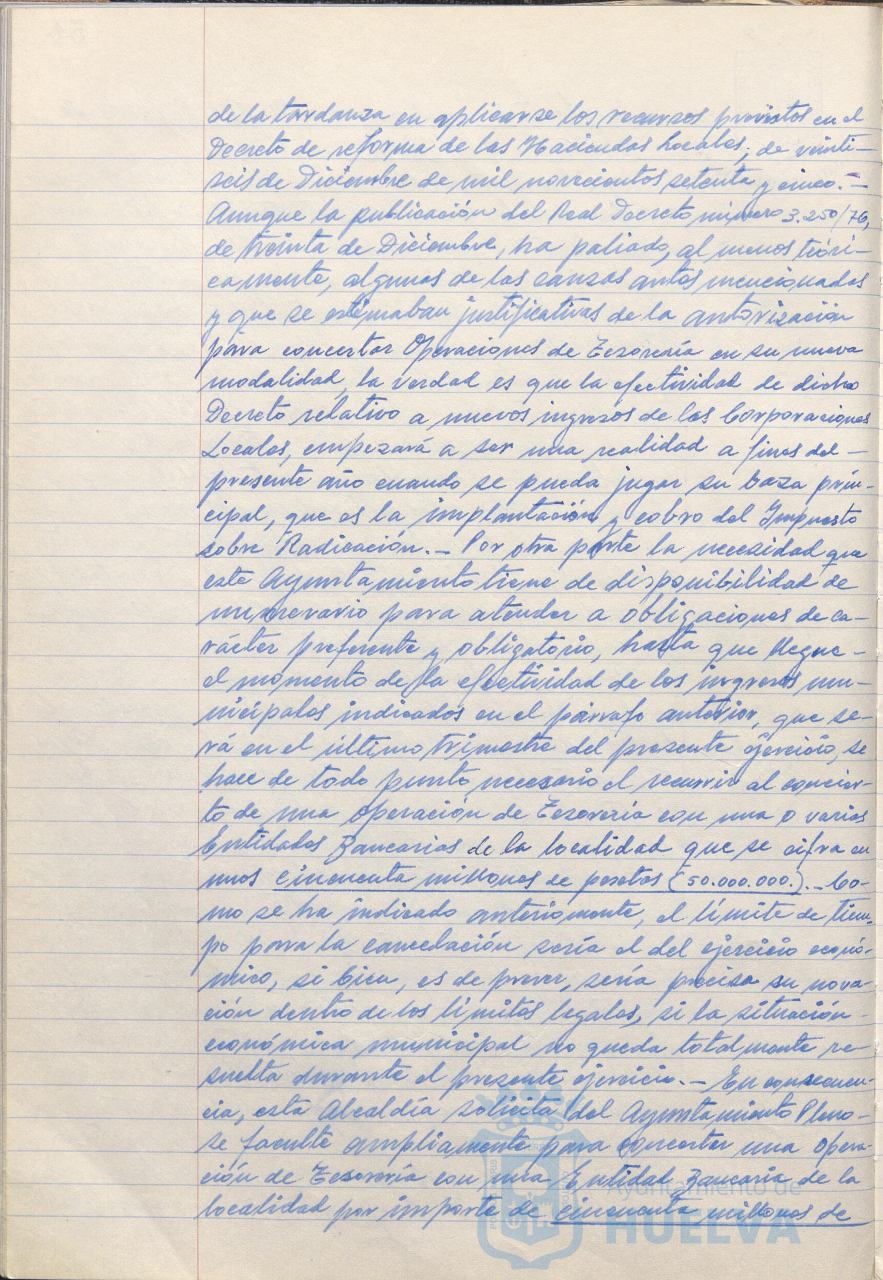 de la tardanza en aplicarse los recursos previstos en el
Decreto de reforma de las Haciendas Locales, de veinti-
seis de Diciembre de mil novecientos setenta y cinco. -
Aunque la publicación del Real Decreto número 3.250/76,
de treinta de Diciembre, ha paliado, al menos teóri-
camente, algunas de las causas antes mencionadas
y que se estimaban justificativas de la autorización
para concertar Operaciones de Tesorería en su nueva
modalidad, la verdad es que la efectividad de dicho
Decreto relativo a nuevos ingresos de las Corporaciones
Locales, empezará a ser una realidad a fines del -
presente año cuando se pueda jugar su baza prin-
cipal, que es la implantación y cobro del Impuesto
sobre Radicación. - Por otra parte la necesidad que
este Ayuntamiento tiene de disponibilidad de
numerario para atender a obligaciones de ca-
rácter preferente y obligatorio, hasta que llegue -
el momento de la efectividad de los ingresos mu-
nicipales indicados en el párrafo anterior, que se-
rá en el último trimestre del presente ejercicio, se
hace de todo punto necesario el recurrir al concier-
to de una operación de Tesorería con una o varias
Entidades Bancarias de la localidad que se cifra en
unos cincuenta millones de pesetas (50.000.000.). - Co-
mo se ha indicado anteriormente, el límite de tiem-
po para la cancelación sería el del ejercicio econó-
mico, si bien, es de prever, sería precisa su nova-
ción dentro de los límites legales, si la situación -
económica municipal no queda totalmente re-
suelta durante el presente ejercicio. - En consecuen-
cia, esta Alcaldía solicita del Ayuntamiento Pleno -
se faculte ampliamente para concertar una opera-
ción de Tesorería con una Entidad Bancaria de la
localidad por importe de cincuenta millones de
Ayuntamiento de
HUELVA